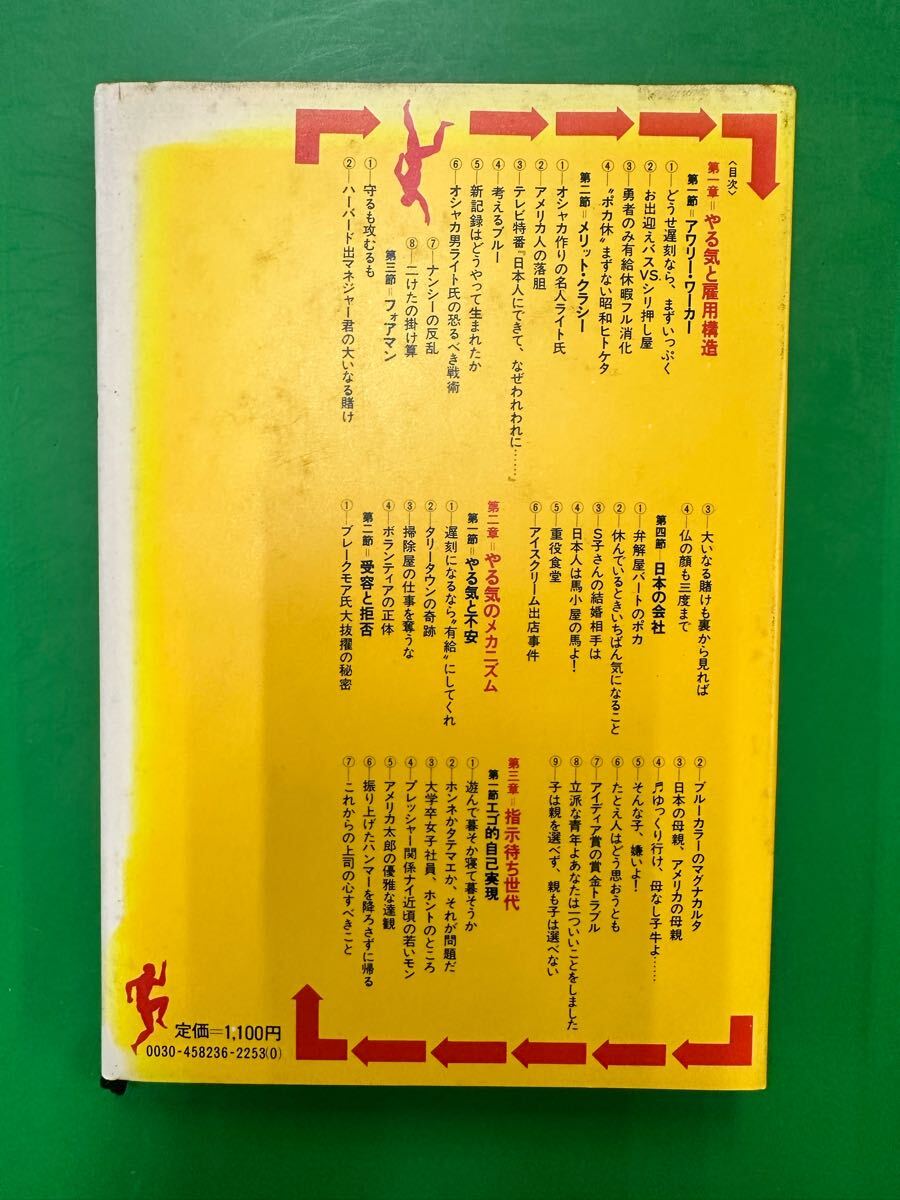 〈目次〉
第一章＝やる気と雇用構造
第一節＝アワリー・ワーカー
①―どうせ遅刻なら、まずいっぷく
②―お出迎えバスVS.シリ押し屋
③―勇者のみ有給休暇フル消化
④―〝ポカ休〟まずない昭和ヒトケタ
第二節＝メリット・クラシー
①―オシャカ作りの名人ライト氏
②―アメリカ人の落胆
③―テレビ特番『日本人にできて、なぜわれわれに……』
④―考えるブルー
⑤―新記録はどうやって生まれたか
⑥―オシャカ男ライト氏の恐るべき戦術
⑦―ナンシーの反乱
⑧―二けたの掛け算
第三節＝フォアマン
①―守るも攻むるも
②―ハーバード出マネジャー君の大いなる賭け
③―大いなる賭けも裏から見れば
④―仏の顔も三度まで
第四節　日本の会社
①―弁解屋バートのポカ
②―休んでいるときいちばん気になること
③―S子さんの結婚相手は
④―日本人は馬小屋の馬よ！
⑤―重役食堂
⑥―アイスクリーム出店事件
第二章＝やる気のメカニズム
第一節＝やる気と不安
①―遅刻になるなら〝有給〟にしてくれ
②―タリータウンの奇跡
③―掃除屋の仕事を奪うな
④―ボランティアの正体
第二節＝受容と拒否
①―ブレークモア氏大抜擢の秘密
②―ブルーカラーのマグナカルタ
③―日本の母親、アメリカの母親
④―♬ゆっくり行け、母なし子牛よ……
⑤―そんな子、嫌いよ！
⑥―たとえ人はどう思おうとも
⑦―アイディア賞の賞金トラブル
⑧―立派な青年よあなたは一ついいことをしました
⑨―子は親を選べず、親も子は選べない
第三章＝指示待ち世代
第一節エゴ的自己実現
①―遊んで暮そか寝て暮そうか
②―ホンネかタテマエか、それが問題だ
③―大学卒女子社員、ホントのところ
④―プレッシャー関係ナイ近頃の若いモン
⑤―アメリカ太郎の優雅な達観
⑥―振り上げたハンマーを降ろさずに帰る
⑦―これからの上司の心すべきこと
定価＝1,100円
0030-458236-2253(0)